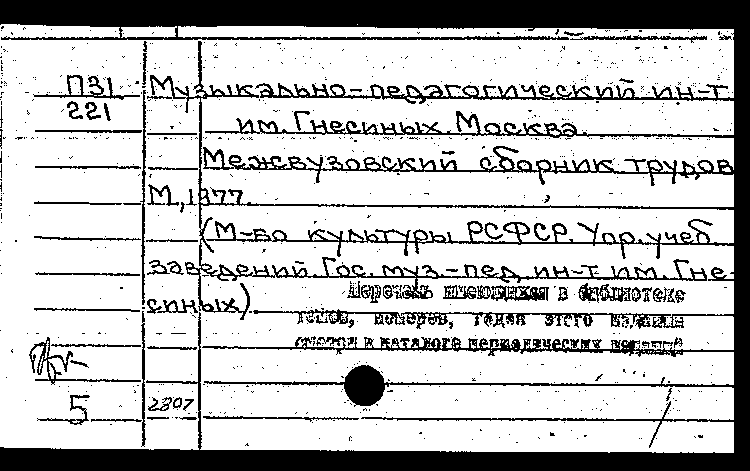 П31 Музыкально-педагогический ин-т
221 им. Гнесиных. Москва.
Межвузовский сборник трудов
М., 1977.
(М-во культуры РСФСР. Упр. учеб.
заведений. Гос. муз.-пед. ин-т им. Гне-
синых).
Перечень имеющихся в библиотеке
томов, номеров, годов этого издания
смотри в каталоге периодических изданий
5 2807